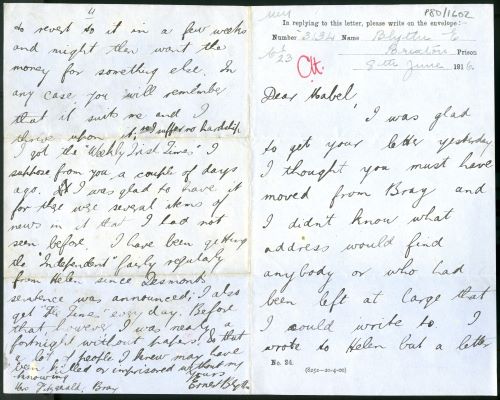 P80/1602
In replying to this letter, please write on the envelope:
Number 3134 Name Blythe E
Brixton Prison
9th June 1916.
C 1/23
Dear Mabel,
I was glad
to get your letter yesterday
I thought you must have
moved from Bray and
I didn't know what
address would find
anybody or who had
been left at large that
I could write to. I
wrote to Helen but a letter
No. 24.
4
to revert to it in a few weeks
and might then want the
money for something else. In
any case you will remember
that it suits me and I
thrive upon it, so I suffer no hardship
I got the "Weekly Irish Times" I
suppose from you a couple of days
ago. I was glad to have it
for there were several items of
news in it that I had not
seen before. I have been getting
the "Independent" fairly regularly
from Helen since Desmond's
sentence was announced; I also
get "The Times" every day. Before
that however I was nearly a
fortnight without papers so that
a lot of people I knew may have
been killed or imprisoned without my
knowing
Yours
Ernest Blythe
Mrs Fitzgerald, Bray